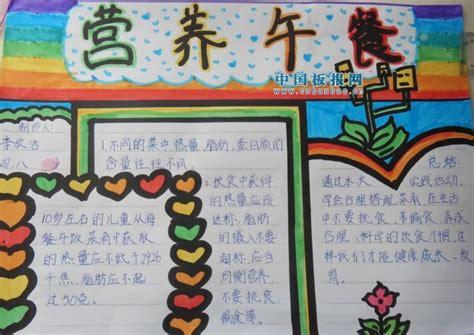 营养午餐
中国板报网
www.cnbanbao.cn
制作人:
李欣洁
四.八
10岁左右的儿童从每
午饭菜肴中获取
的热量应不低于2926
千焦,脂肪应不超
过50克。
1.不同的菜中热量,脂肪,蛋白质的
含量往往不同。
2.饮食中获得
的热量应该
达标,脂肪
的摄入不要
超标,应当
均衡营养,
不要挑食,
偏食等。
总结:
通过本次 实践活动,
学会合理搭配菜肴,在生活
中不要挑食,不偏食,养成
合理、科学的饮食习惯,这
样我们才能健康成长、发
育。